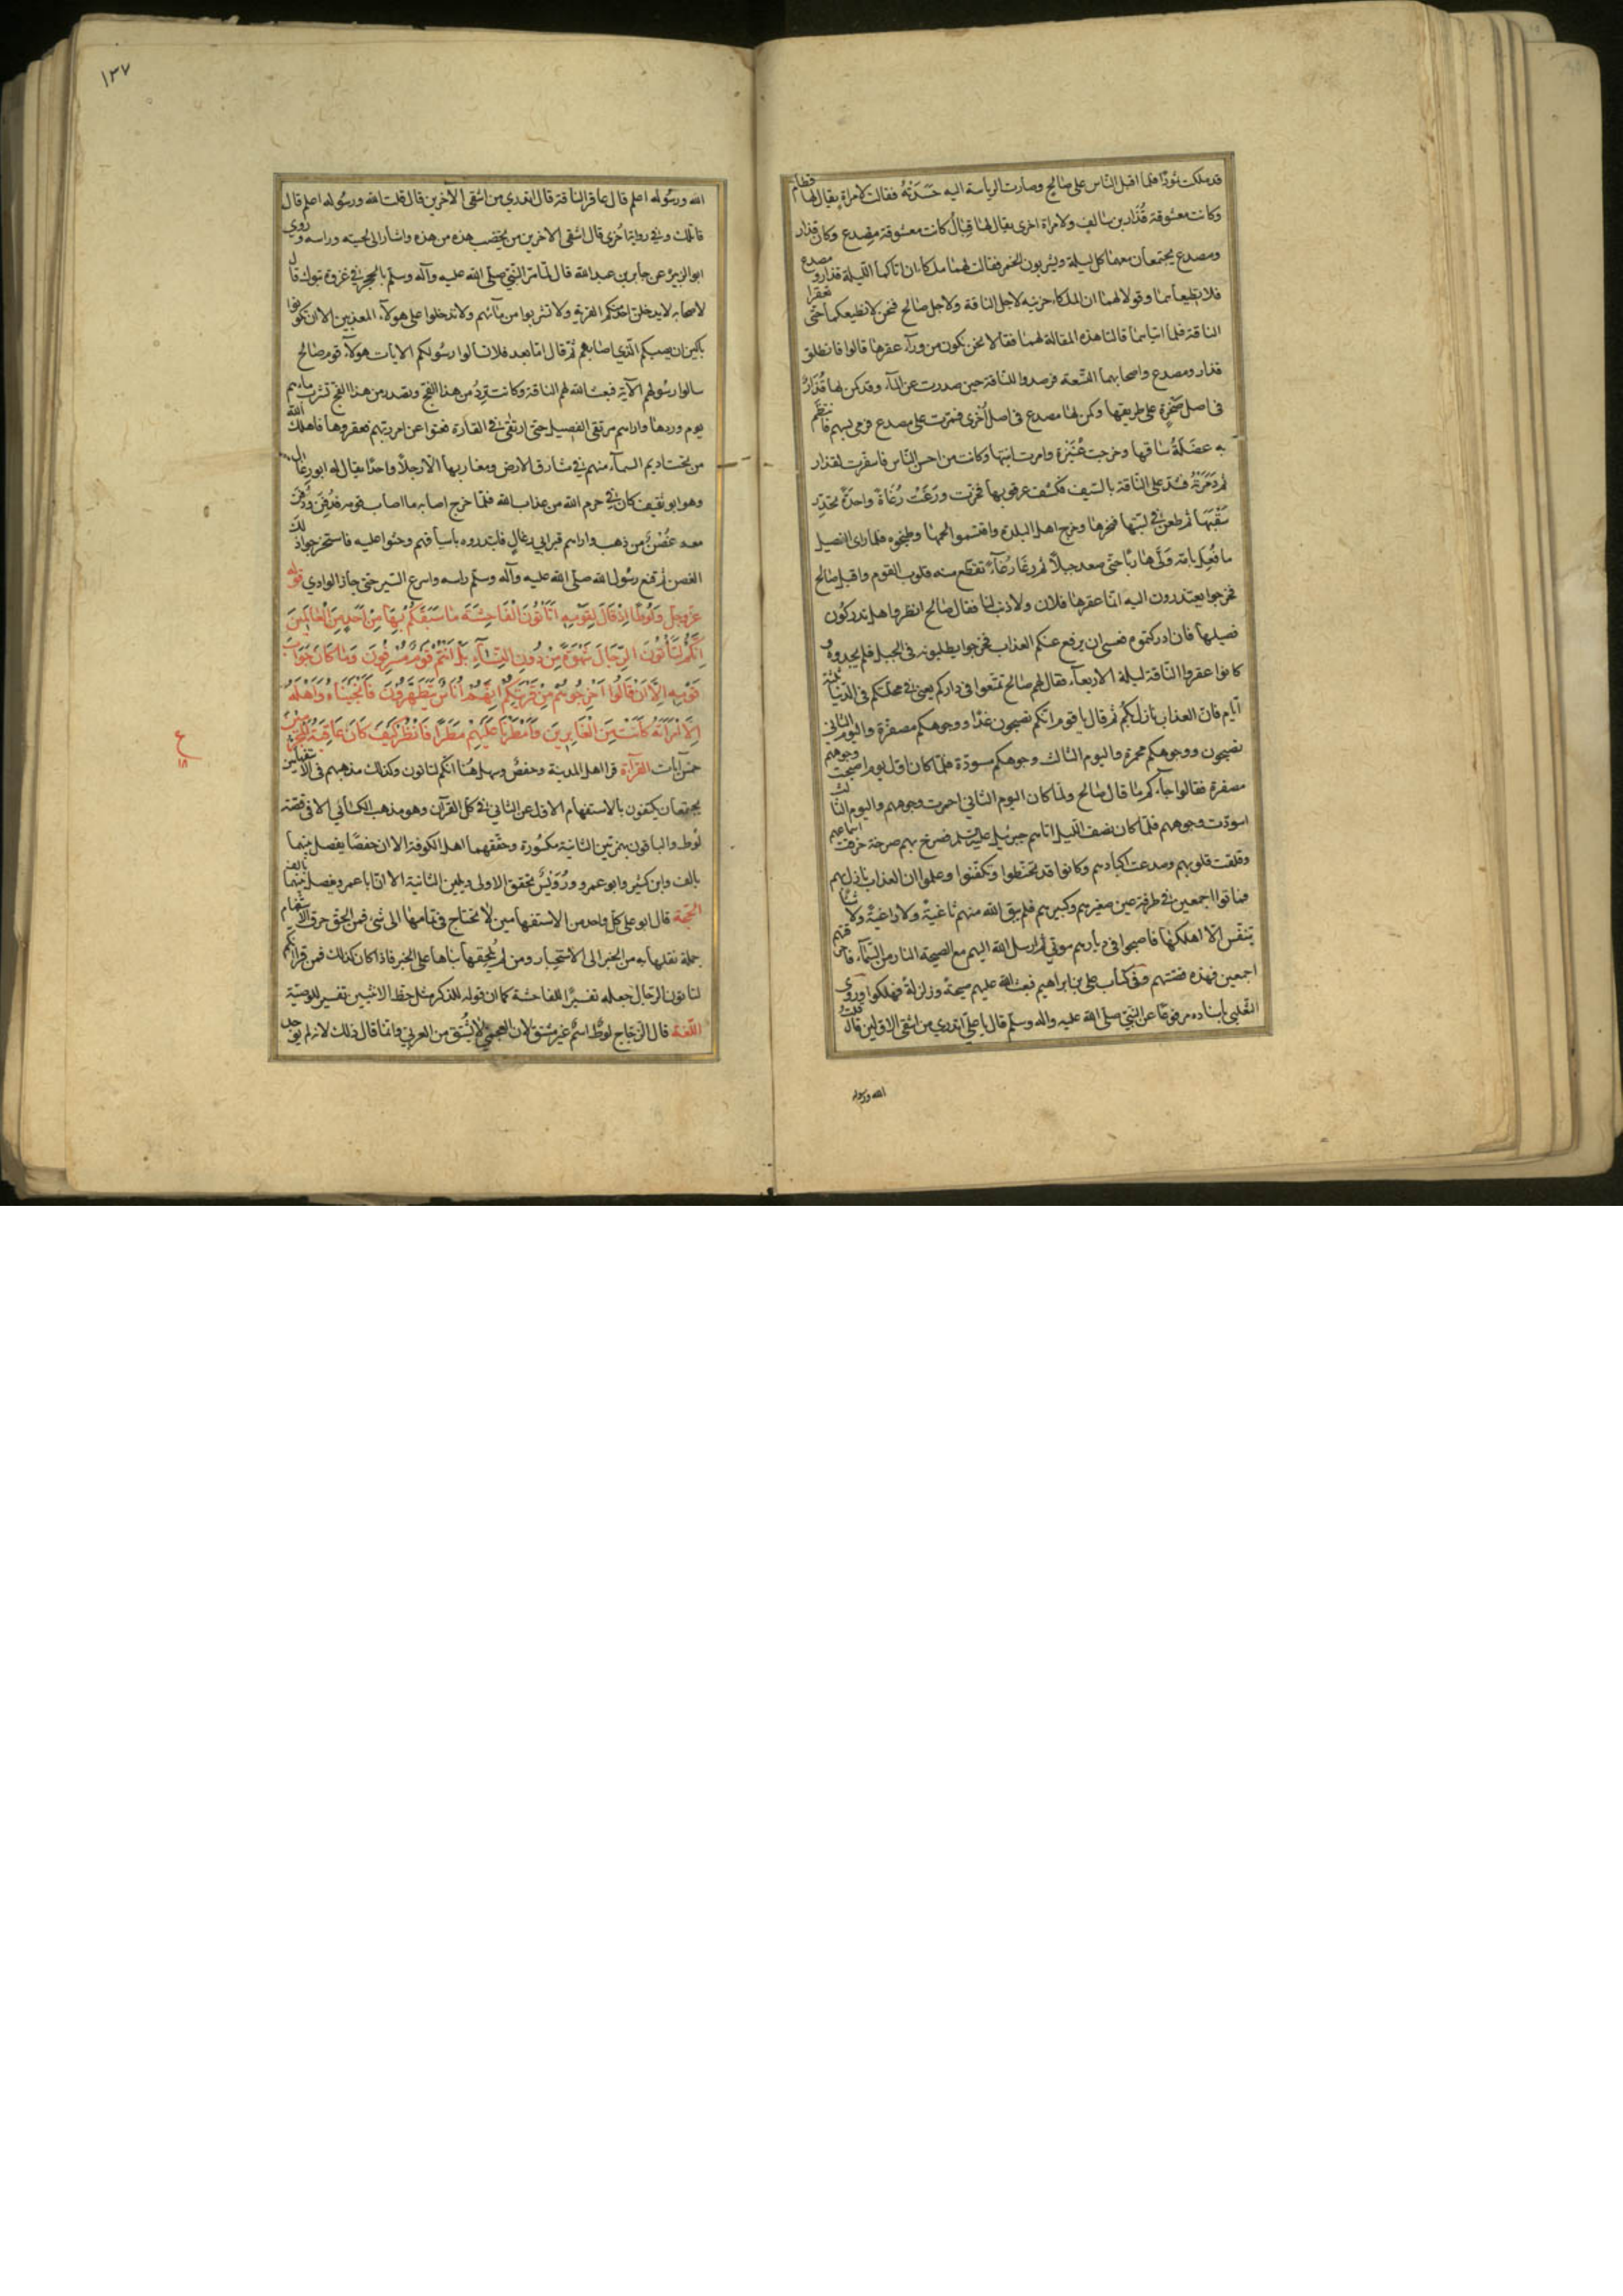 قد ملكت ثمودًا فلما اقبل الناس على صالح وصارت الرياسة اليه حسدته فقالت لامراة يقال لها قطام
وكانت معشوقة قُذار بن سالف ولامراة اخرى يقال لها قبال كانت معشوقة مصدع وكان قذار
ومصدع يجتمعان معهما كل ليلة ويشربون الخمر فقالت لهما ملكا ان اتاكما الليلة قذار ومصدع
فلا تطيعاهما وقولا لهما ان الملكاء حزينة لاجل الناقة ولاجل صالح فنحن لا نطيعكما حتى تعقرا
الناقة فلما اتياهما قالتا هذه المقالة لهما فقالا نحن نكون من ورآء عقرها قالوا فانطلق
قذار ومصدع واصحابهما السبعة فرصدوا للناقة حين صدرت عن المآء وقد كمن لها قُذارٌ
فى اصل صخرةٍ على طريقها وكمن لها مصدع فى اصل اخرى فمرت على مصدع فرمى بسهم فانتظم
به عضلة ساقها وخرجت عُنَيزة وامرت ابنتها وكانت من احسن الناس فاسفرت لقذار
ثم دمرته فشد على الناقة بالسيف فكشف عرقوبها فخرت ورغت رُغاةً واحدةً تحذر
سَقْبَها ثم طعن في لبتها فنحرها وخرج اهل البلدة واقتسموا لحمها وطبخوه فلما راى الفصيل
ما فُعِل بامه ولّى هاربًا حتى صعد جبلًا ثم رغا رغآءً تقطع منه قلوب القوم واقبل صالح
فخرجوا يعتذرون اليه انما عقرها فلان ولا ذنب لنا فقال صالح انظروا هل تدركون
فصيلها فان ادركتموه فعسى ان يرفع عنكم العذاب فخرجوا يطلبونه فى الجبل فلم يجدوه و
كانوا عقروا الناقة ليلة الاربعآء فقال لهم صالح تمتعوا فى داركم يعنى في محلتكم فى الدنيا ثلثة
ايام فان العذاب نازل بكم ثم قال يا قوم انكم تصبحون غدًا ووجوهكم مصفرة واليوم الثاني
تصبحون ووجوهكم محمرة واليوم الثالث وجوهكم مسودة فلما كان اول يوم اصبحت وجوههم
مصفرة فقالوا جآءكم ما قال صالح ولما كان اليوم الثاني احمرت وجوههم واليوم الثالث
اسودت وجوههم فلما كان نصف الليل اتاهم جبرئيل عليه السلم فصرخ بهم صرخة خرقت اسماعهم
وقلقت قلوبهم وصدعت اكبادهم وكانوا قد تحنطوا وتكفنوا وعلموا ان العذاب نازل بهم
فماتوا اجمعين في طرفة عين صغيرهم وكبيرهم فلم يبق الله منهم ثاغيةً ولا راغيةً ولا شيئا
يتنفس الا اهلكها فاصبحوا فى ديارهم موتى ثم ارسل الله اليهم مع الصيحة النار من السمآء فاحرقتهم
اجمعين فهذه قصتهم وفى كتاب على بن ابراهيم فبعث الله عليهم صيحةً وزلزلةً فهلكوا وروى
الثعلبى باسناده مرفوعًا عن النبي صلى الله عليه واله وسلم قال يا على اتدري من اشقى الاولين قال قلت
الله ورسوله
١٣٧
الله ورسوله اعلم قال عاقر الناقة قال اتدري من اشقى الآخرين قال قلت الله ورسوله اعلم قال
قاتلك وفي رواية اخرى قال اشقى الاخرين من يخضب هذه من هذه واشار الى لحيته وراسه وروي
ابو الزبير عن جابر بن عبد الله قال لما مر النبي صلى الله عليه وآله وسلم بالحجر في غزوة تبوك قال
لاصحابه لا يدخلن احدكم القرية ولا تشربوا من مآئهم ولا تدخلوا على هولآء المعذبين الا ان تكونوا
باكين ان يصيبكم الذي اصابهم ثم قال اما بعد فلا تسالوا رسولكم الايات هولآء قوم صالح
سالوا رسولهم الآية فبعث الله لهم الناقة وكانت تَرِدُ من هذا الفج وتصدر من هذا الفج تشرب ماءهم
يوم وردها واراهم مرتقى الفصيل حتى ارتقى في القارة فعتوا عن امر ربهم فعقروها فاهلك الله
من تحت اديم السمآء منهم في مشارق الارض ومغاربها الا رجلًا واحدًا يقال له ابو رغال
وهو ابو ثقيف كان في حرم الله من عذاب الله فلما خرج اصابه ما اصاب قومه فدُفِنَ ودفن
معه غُصْنٌ من ذهب واراهم قبر ابي رغالٍ فابتدروه باسيافهم وحثوا عليه فاستخرجوا ذلك
الغصن ثم قنع رسول الله صلى الله عليه وآله وسلم راسه واسرع السير حتى جاز الوادي قوله
عز وجل وَلُوطًا اِذْ قَالَ لِقَوْمِهِ اَتَأْتُونَ الْفَاحِشَةَ مَا سَبَقَكُمْ بِهَا مِنْ اَحَدٍ مِنَ الْعَالَمِينَ
اِنَّكُمْ لَتَأْتُونَ الرِّجَالَ شَهْوَةً مِنْ دُونِ النِّسَآءِ بَلْ اَنْتُمْ قَوْمٌ مُسْرِفُونَ وَمَا كَانَ جَوَابَ
قَوْمِهِ اِلَّا اَنْ قَالُوا اَخْرِجُوهُمْ مِنْ قَرْيَتِكُمْ اِنَّهُمْ اُنَاسٌ يَتَطَهَّرُونَ فَاَنْجَيْنَاهُ وَاَهْلَهُ
اِلَّا امْرَاَتَهُ كَانَتْ مِنَ الْغَابِرِينَ وَاَمْطَرْنَا عَلَيْهِمْ مَطَرًا فَانْظُرْ كَيْفَ كَانَ عَاقِبَةُ الْمُجْرِمِينَ
ع
١٨
خمس آيات القرآءة قرا اهل المدينة وحفصٌ وسهل هٰهنا انكم لتاتون وكذلك مذهبهم فى الاستفهامين
يجتمعان يكتفون بالاستفهام الاول عن الثاني في كل القرآن وهو مذهب الكسائي الا فى قصة
لوط والباقون بهمزتين الثانية مكسورة وحققهما اهل الكوفة الا ان حفصًا يفصل بينهما
بالف وابن كثير وابو عمرو ورُوَيْسٌ بتحقيق الاولى وتليين الثانية الا ان ابا عمرو يفصل بينهما بالف
الحجة قال ابو على كل واحد من الاستفهامين لا تحتاج فى تمامها الى شىء فمن الحق حرف الاستفهام
جملة نقلها به من الخبر الى الاستخبار ومن لم يُلحِقها بقاها على الخبر فاذا كان كذلك فمن قرا انكم
لتاتون الرجال جعله تفسيرًا للفاحشة كما ان قوله للذكر مثل حظ الانثيين تفسير للوصية
اللغة قال الزجاج لوطٌ اسمٌ غير مشتق لان العجمي لا يُشتق من العربي وانما قال ذلك لانه لم يوجد